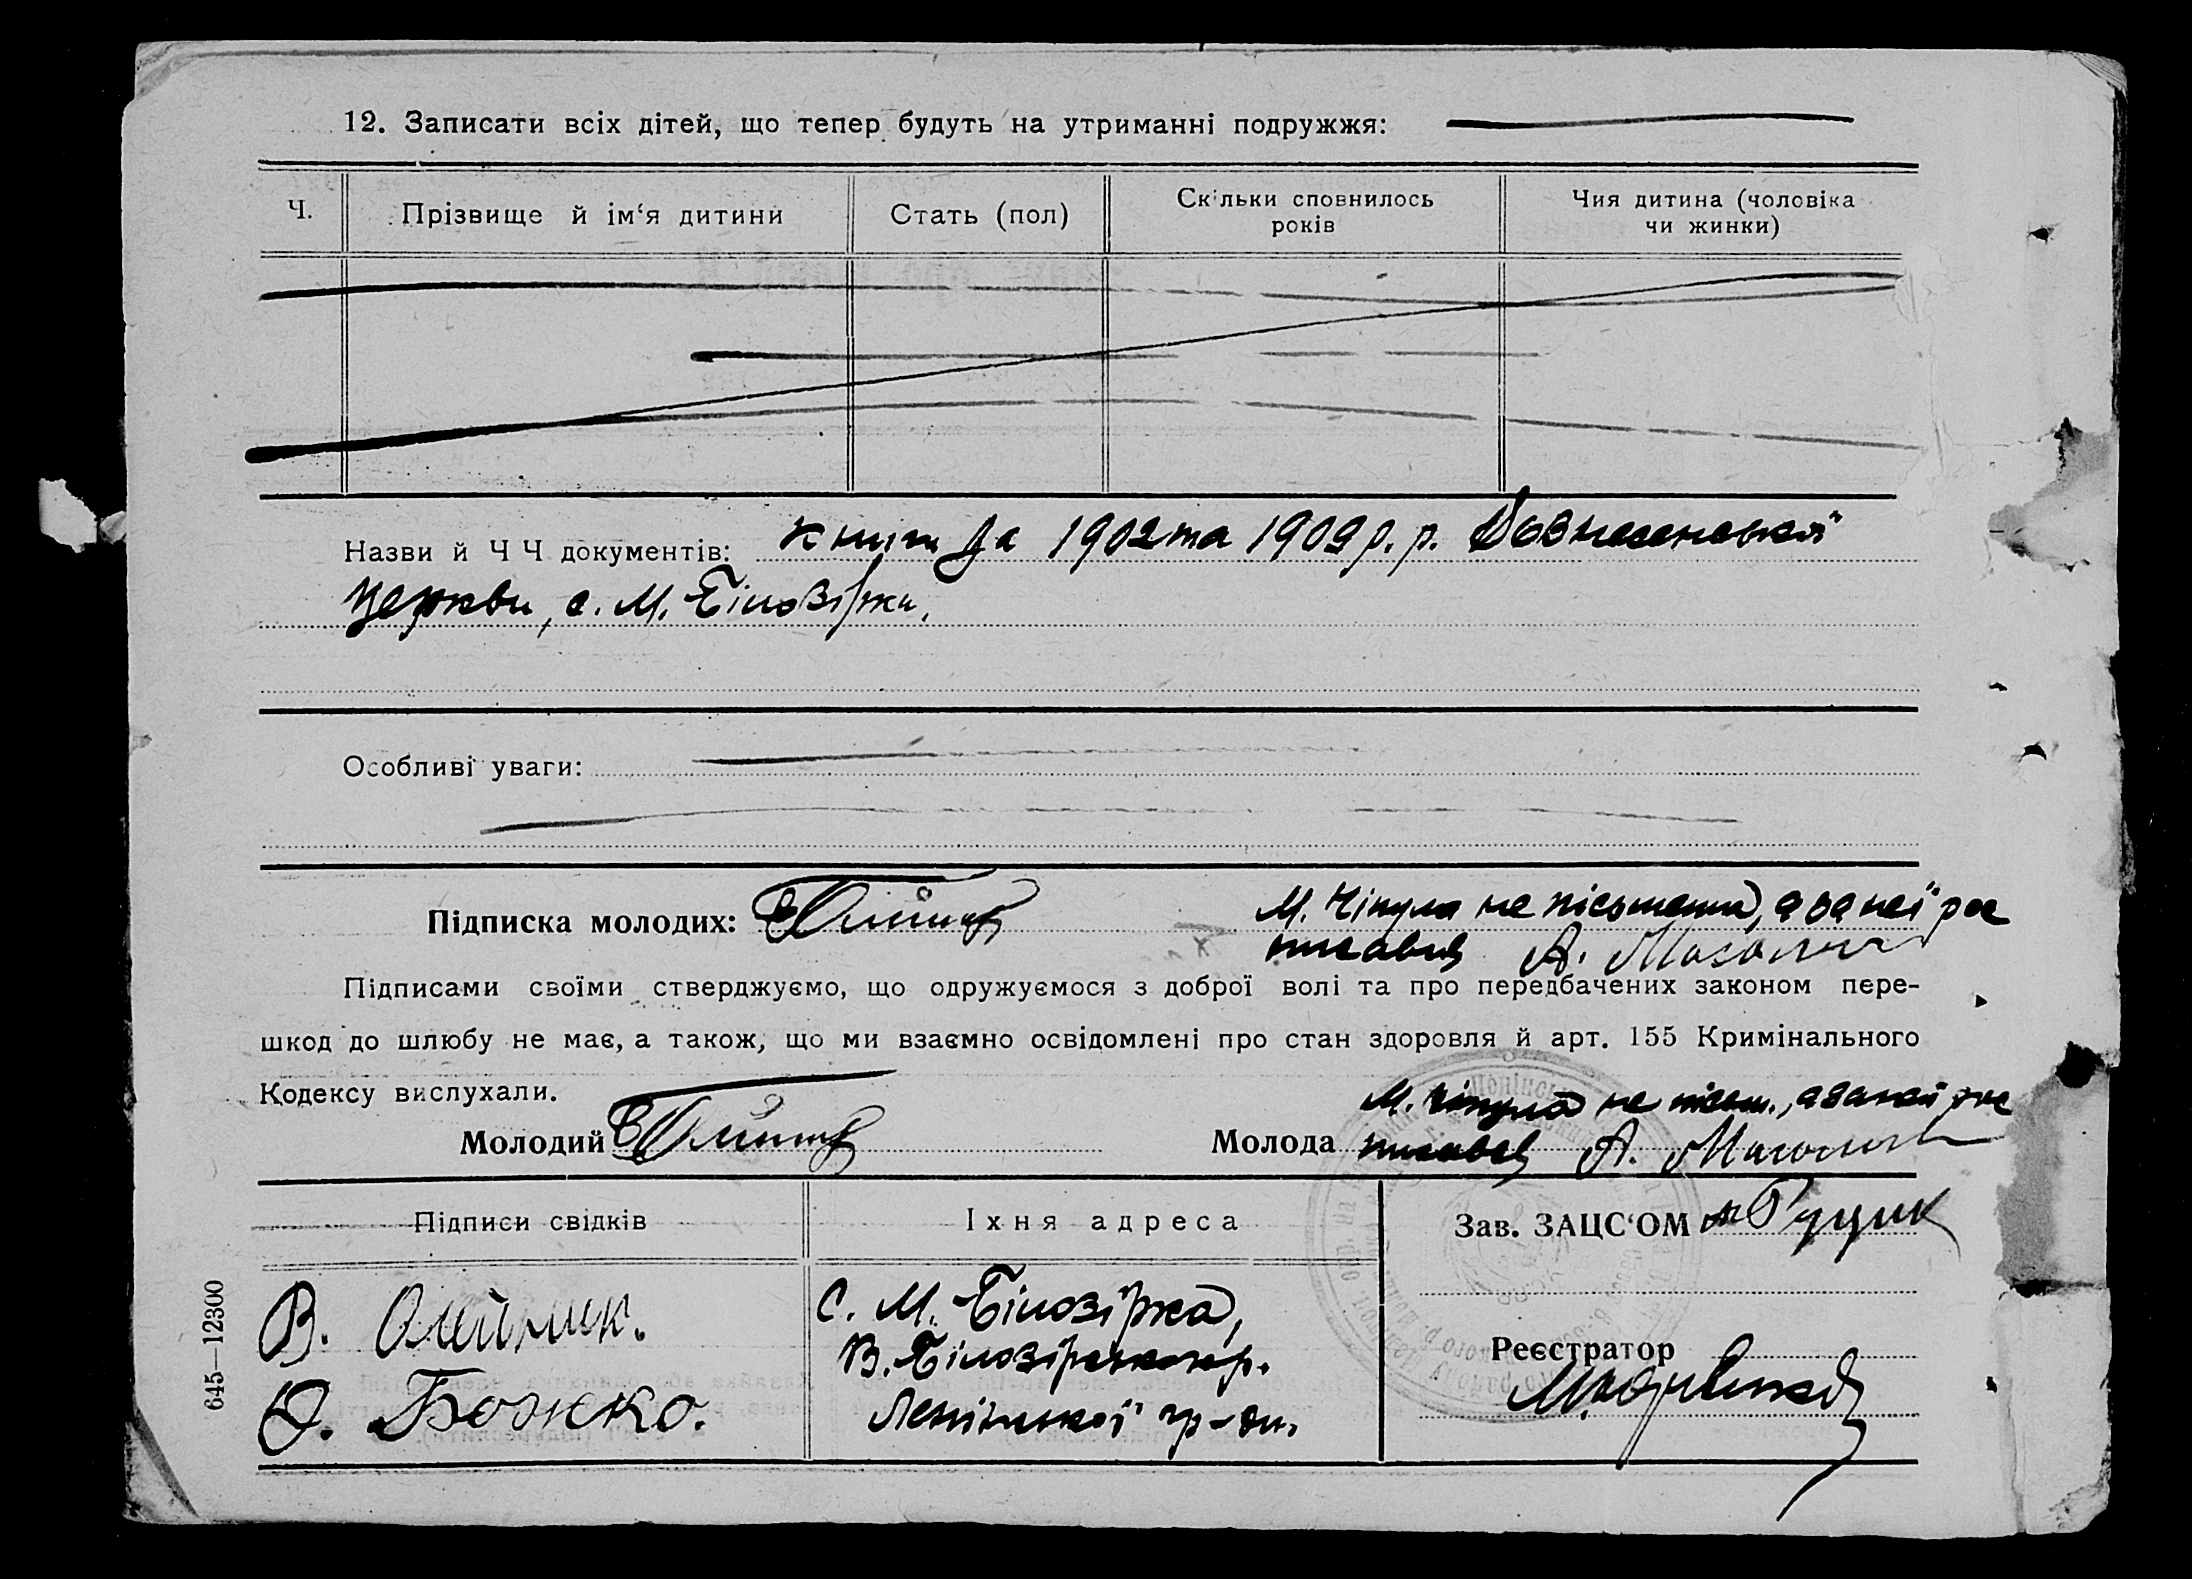 12. Записати всіх дітей, що тепер будуть на утриманні подружжя:
Ч.
Прізвище й ім‘я дитини
Стать (пол)
Скільки сповнилось
років
Чия дитина (чоловіка
чи жинки)
Назви й Ч Ч документів: книги за 1902 та 1909 р. р. Вознесенської
церкви, с. М. Білозірки.
Особливі уваги:
Підписка молодих:
М. Чіпула не пісьменна, а за неї рос
писавсь А.
Підписами своїми стверджуємо, що одружуємося з доброї волі та про передбачених законом пере-
шкод до шлюбу не має, а також, що ми взаємно освідомлені про стан здоровля й арт. 155 Кримінального
Кодексу вислухали.
Молодий
Молода
М. Чіпула не пісьм., а за неї рос
писавсь А.
Підписи свідків
Їхня адреса
Зав. ЗАЦС‘ОМ
В. Олійник.
Божко.
С. М. Білозірка,
В. Білозірського р.
Реєстратор
645—12300